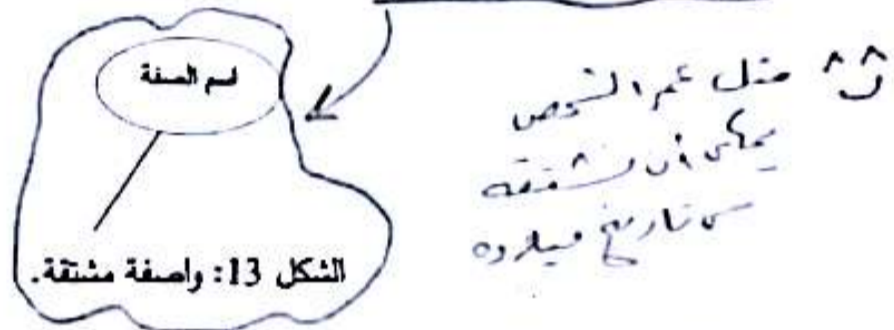 اسم الصفة
الشكل 13: واصفة مشتقة.
مثل عمر الشخص
يمكن أن نشتقه
من تاريخ ميلاده